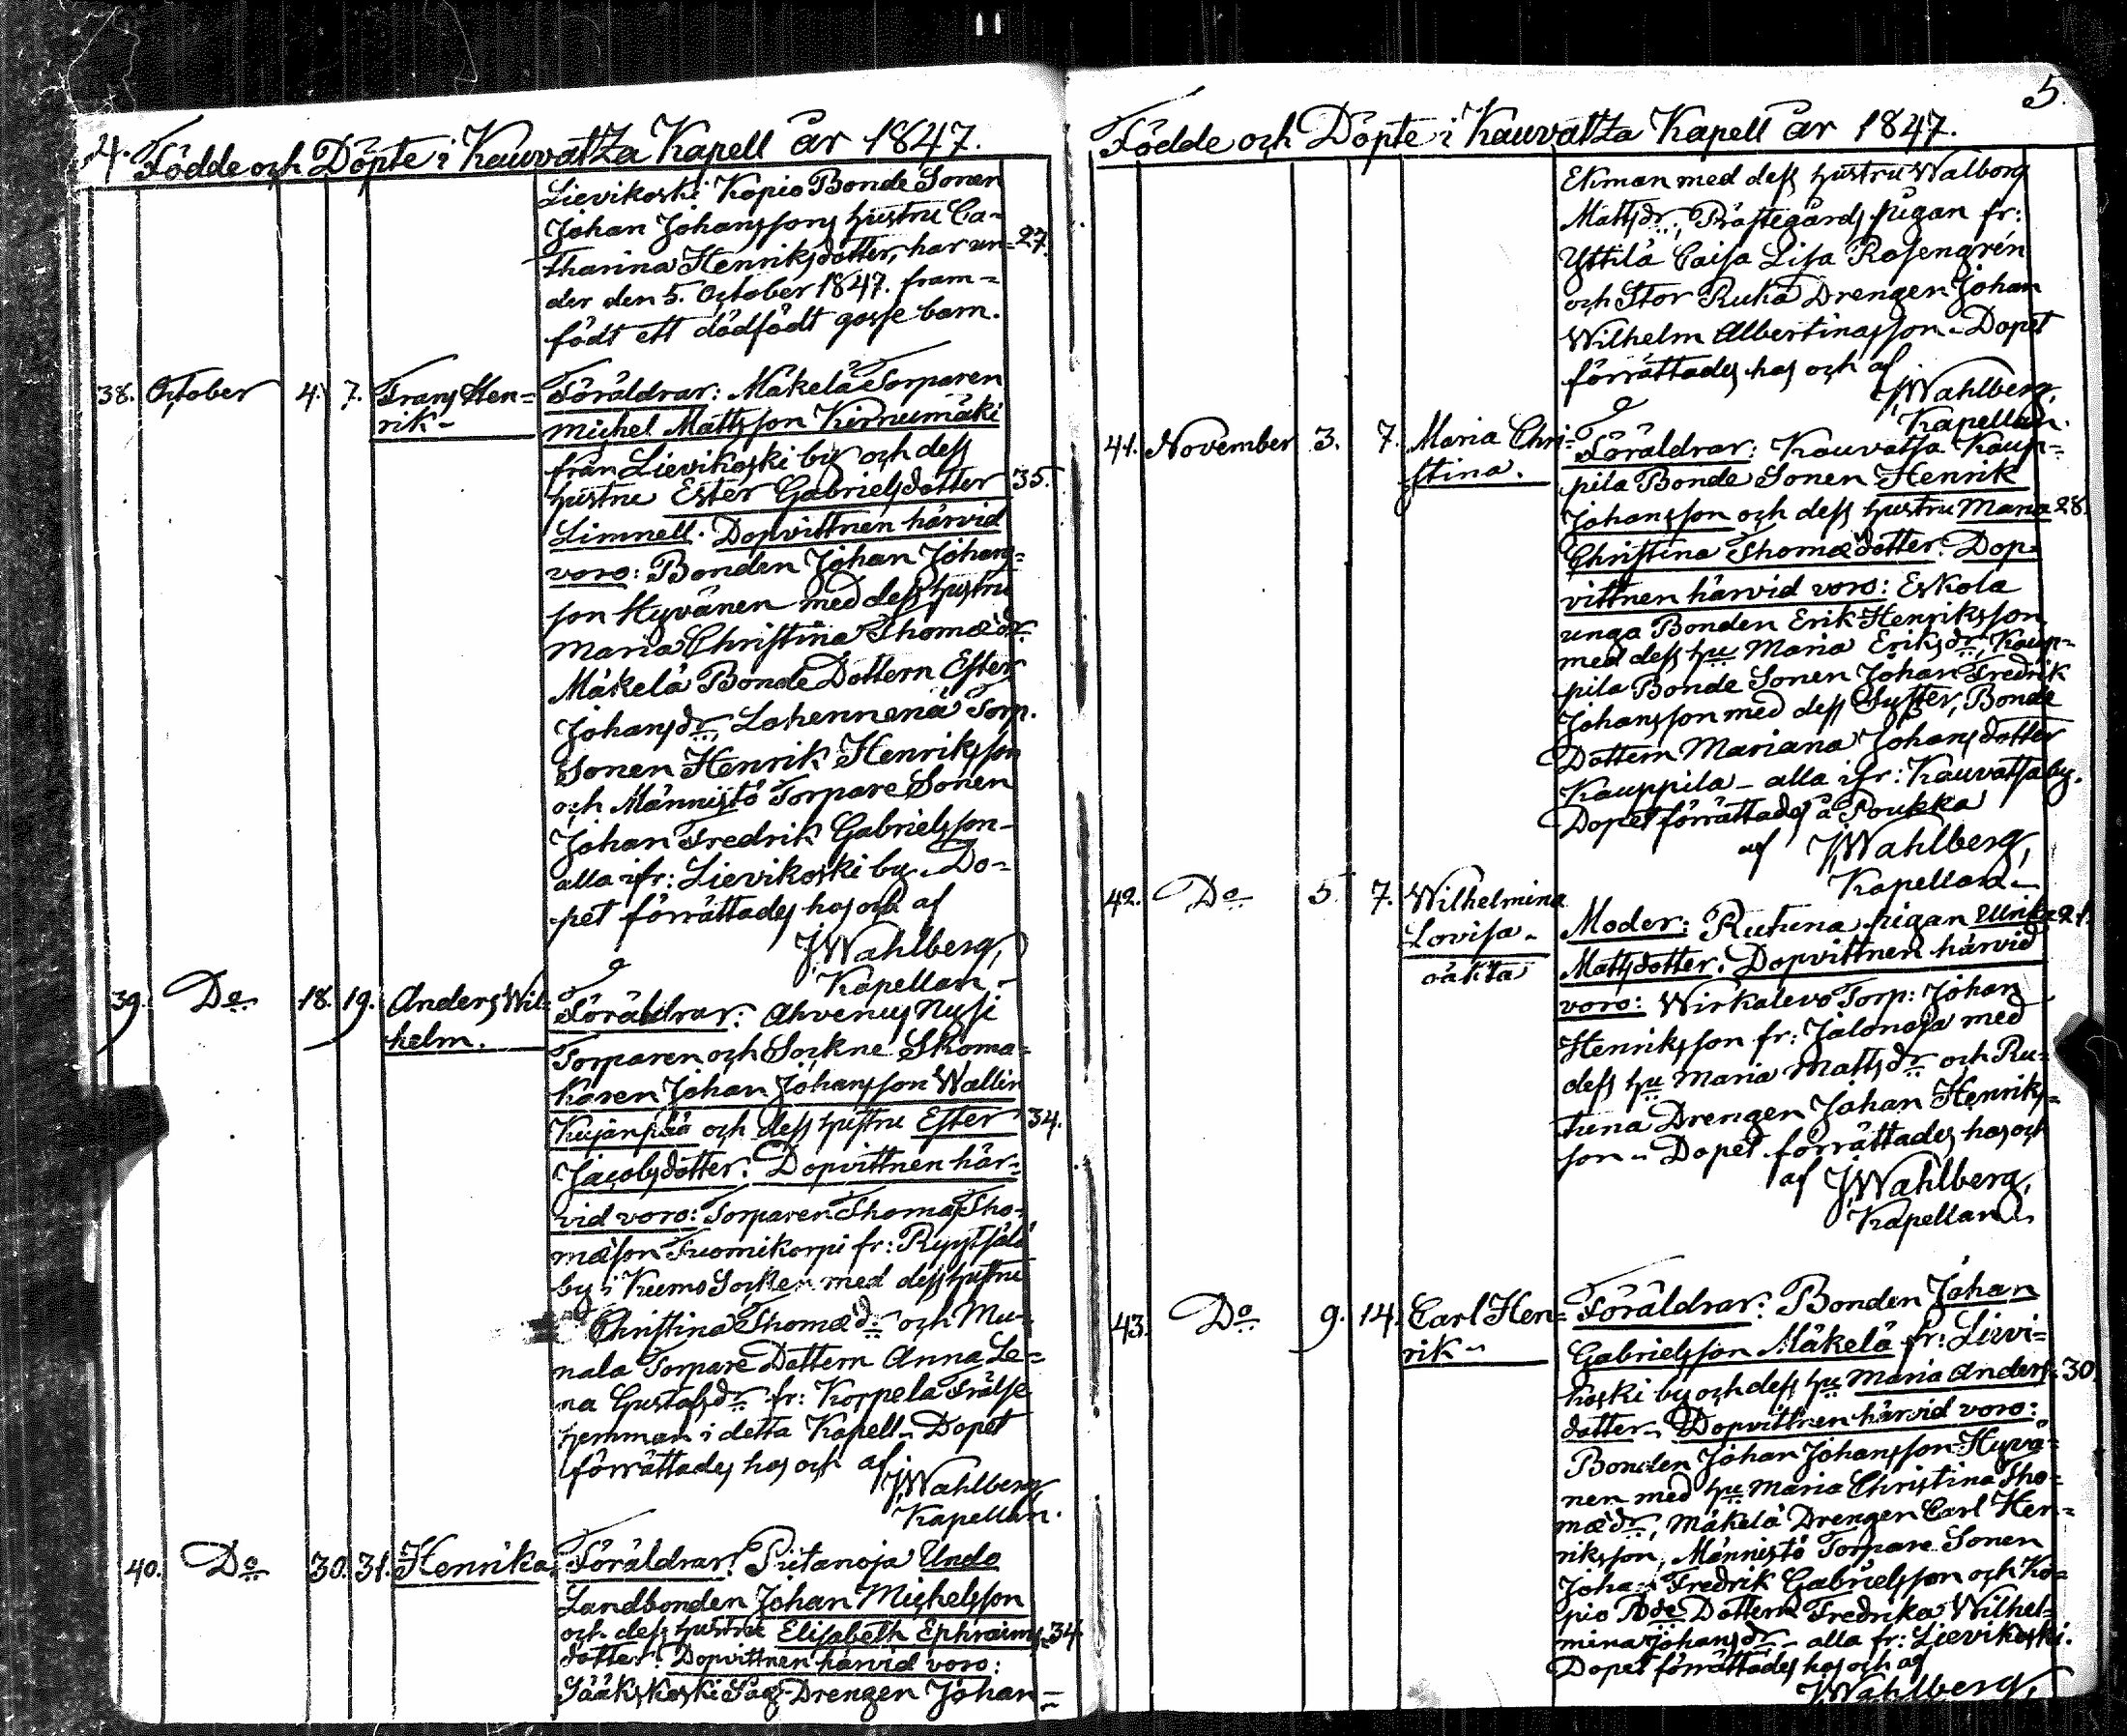 4. Födde och Döpte i Kauvatza Kapell år 1847.
Lievikoski Kopio Bonde Sonen
Johan Johanssons hustru Ca-
tharina Henriksdotter, har un- 27.
der den 5. October 1847. fram-
födt ett dödfödt gosse barn.
38. October 4. 7. Frans Hen-
rik -
Föräldrar: Mäkelä Torparen
Michel Mattsson Kirnumäki
från Lievikoski by och dess
hustru Ester Gabrielsdotter 35.
Limnell. Dopvittnen härvid
voro: Bonden Johan Johans-
son Hyvänen med dess hustru
Maria Christina Thomædr
Mäkelä Bonde Dottern Ester
Johansdr, Lahennenä Torp.
Sonen Henrik Henriksson
och Männistö Torpare Sonen
Johan Fredrik Gabrielsson -
alla ifr: Lievikoski by. Do-
pet förrättades hos och af
JWahlberg,
Kapellan -
39. Do 18. 19. Anders Wil-
helm.
Föräldrar: Ahvenus Nysi
Torparen och Sockne Skoma-
karen Johan Johansson Wallin
Kujanpää och dess hustru Ester 34.
Jacobsdotter. Dopvittnen här-
vid voro: Torparen Thomas Tho-
mæson Tuomikorpi fr: Ryytsälä
by i Kumo Socken med dess hustru
Christina Thomæd: och Mu-
nala Torpare Dottern Anna Le-
na Gustafsdr fr: Korpela Frälse
hemman i detta Kapell - Dopet
förrättades hos och af
JWahlberg,
Kapellan.
40. Do 30. 31. Henrika.
Föräldrar: Pietanoja Undo
Landbonden Johan Michelsson
och dess hustru Elisabeth Ephraims- 34.
dotter. Dopvittnen härvid voro:
Sääkskoski Såg-Drengen Johan =
5.
Födde och Döpte i Kauvatza Kapell år 1847.
Ekman med dess hustru Walborg
Mattsdr, Prästegårds pigan fr:
Yttilä Caisa Lisa Rosengrén
och Stor Ruka Drengen Johan
Wilhelm Albertinasson - Dopet
förrättades hos och af
JWahlberg,
Kapellan.
41. November 3. 7. Maria Chri-
stina.
Föräldrar: Kauvatsa Kaup-
pila Bonde Sonen Henrik
Johansson och dess hustru Maria 28.
Christina Thomædotter. Dop-
vittnen härvid voro: Eskola
unga Bonden Erik Henriksson
med dess hu Maria Eriksdr, Kaup-
pila Bonde Sonen Johan Fredrik
Johansson med dess Syster, Bonde
Dottern Mariana Johansdotter
Kauppila - alla ifr: Kauvatsa by.
Dopet förrättades å Poukka
af JWahlberg,
Kapellan -
42. Do 5. 7. Wilhelmina
Lovisa -
oäkta
Moder: Rutuna pigan Ulrika 21.
Mattsdotter. Dopvittnen härvid
voro: Wirkalevo Torp: Johan
Henriksson fr: Jalonoja med
dess hu Maria Mattsdr och Ru-
tuna Drengen Johan Henriks-
son - Dopet förrättades hos och
af JWahlberg,
Kapellan -
43. Do 9. 14. Carl Hen-
rik -
Föräldrar: Bonden Johan
Gabrielsson Mäkelä fr: Lievi-
koski by och dess hu Maria Anders- 30.
dotter. Dopvittnen härvid voro:
Bonden Johan Johansson Hyvä-
nen med hu Maria Christina Tho-
mædr, Mäkelä Drengen Carl Hen-
riksson, Männistö Torpare Sonen
Johan Fredrik Gabrielsson och Ko-
pio Bde Dottern Fredrika Wilhel-
mina Johansdr - alla fr: Lievikoski.
Dopet förrättades hos och af
JWahlberg,